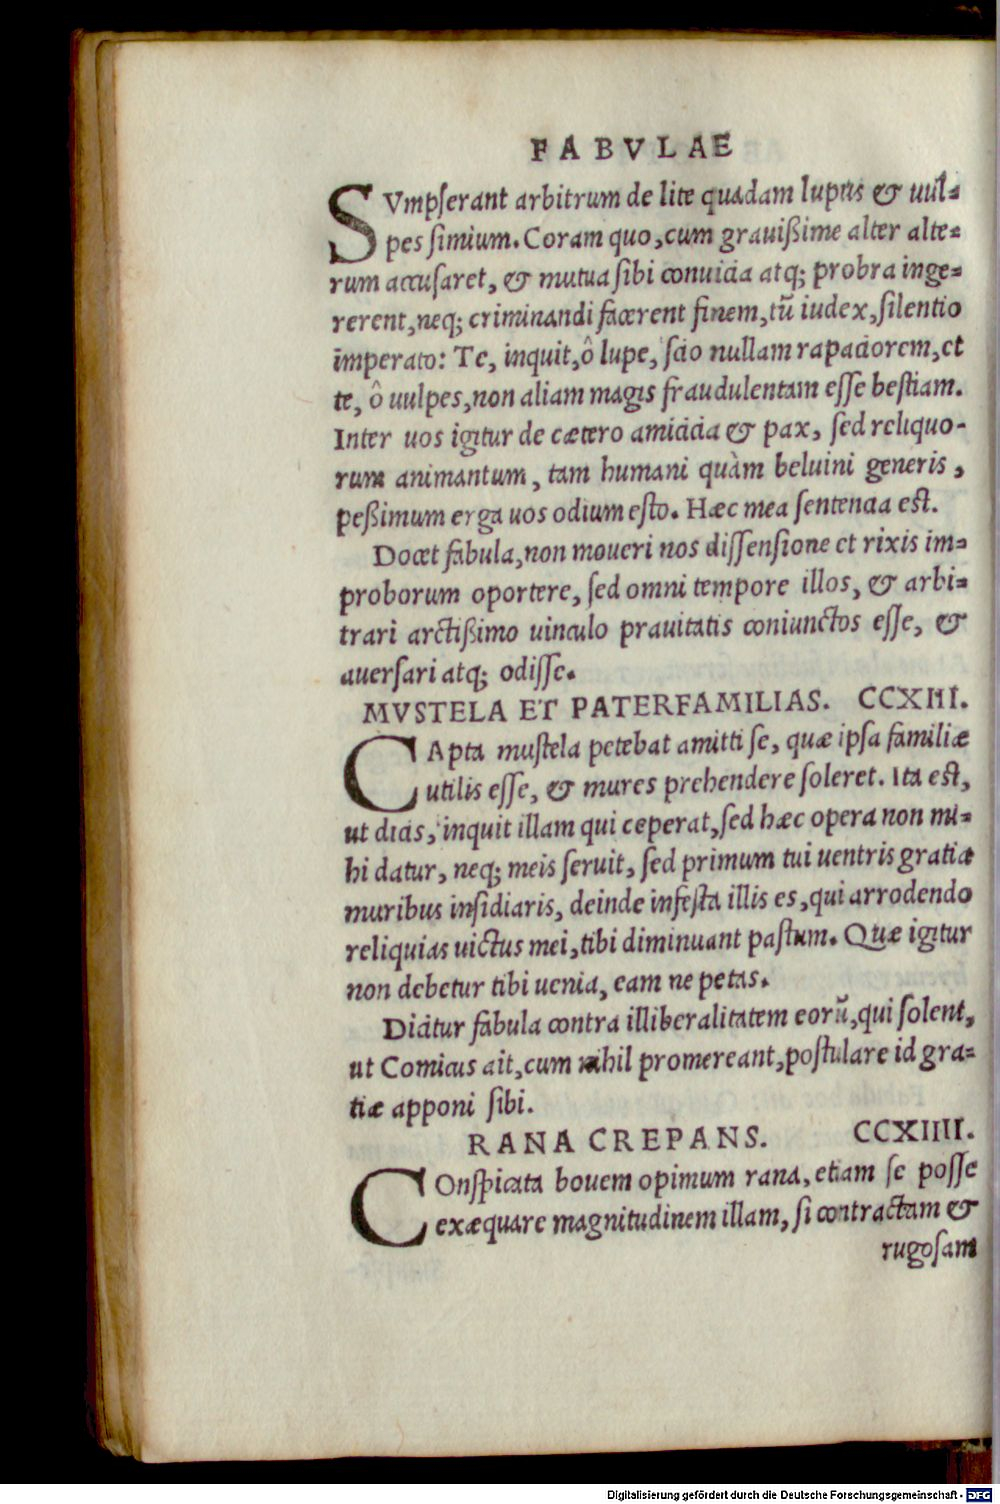 FABVLAE
SVmpſerant arbitrum de lite quadam lupus & uul=
pes ſimium. Coram quo, cum grauißime alter alte=
rum accuſaret, & mutua ſibi conuicia atq; probra inge=
rerent, neq; criminandi facerent finem, tũ iudex, ſilentio
imperato: Te, inquit, ô lupe, ſcio nullam rapaciorem, et
te, ô uulpes, non aliam magis fraudulentam eſſe beſtiam.
Inter uos igitur de cætero amicicia & pax, ſed reliquo-
rum animantum, tam humani quàm beluini generis,
peßimum erga uos odium eſto. Hæc mea ſententia eſt.
Docet fabula, non moueri nos diſſenſione et rixis im=
proborum oportere, ſed omni tempore illos, & arbi=
trari arctißimo uinculo prauitatis coniunctos eſſe, &
auerſari atq; odiſſe.
MVSTELA ET PATERFAMILIAS. CCXIII.
CApta muſtela petebat amitti ſe, quæ ipſa familiæ
utilis eſſe, & mures prehendere ſoleret. Ita eſt,
ut dicis, inquit illam qui ceperat, ſed hæc opera non mi=
hi datur, neq; meis ſeruit, ſed primum tui uentris gratia
muribus inſidiaris, deinde infeſta illis es, qui arrodendo
reliquias uictus mei, tibi diminuant paſtum. Quæ igitur
non debetur tibi uenia, eam ne petas.
Dicitur fabula contra illiberalitatem eorũ, qui ſolent,
ut Comicus ait, cum nihil promereant, poſtulare id gra=
tiæ apponi ſibi.
RANA CREPANS. CCXIIII.
COnſpicata bouem opimum rana, etiam ſe poſſe
exæquare magnitudinem illam, ſi contractam &
rugoſam
Digitalisierung gefördert durch die Deutsche Forschungsgemeinschaft - DFG